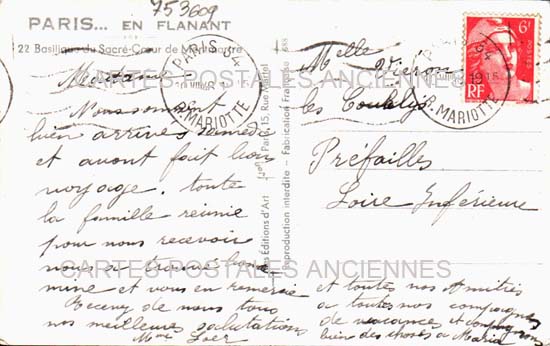 753609
PARIS... EN FLANANT
22 Basilique du Sacré-Cœur de Montmartre
PARIS
R. MARIOTTE
R. MARIOTTE
6F
POSTES
RF
CARTES POSTALES ANCIENNES
CARTES POSTALES ANCIENNES
Les Éditions d'Art
Paris-15, Rue
Reproduction interdite - Fabrication Française
Madame
Nous sommes
bien arrivés samedi
et avont fait bon
voyage. toute
la famille réunie
pour nous recevoir
nous a trouvé bonne
mine et vous en remercie
Recevez de nous tous
nos meilleures salutations
Mme
Melle
les
Préfailles
Loire Inférieure
et toutes nos Amitiés
a toutes nos compagnes
de vacances et
bien des choses a Maria